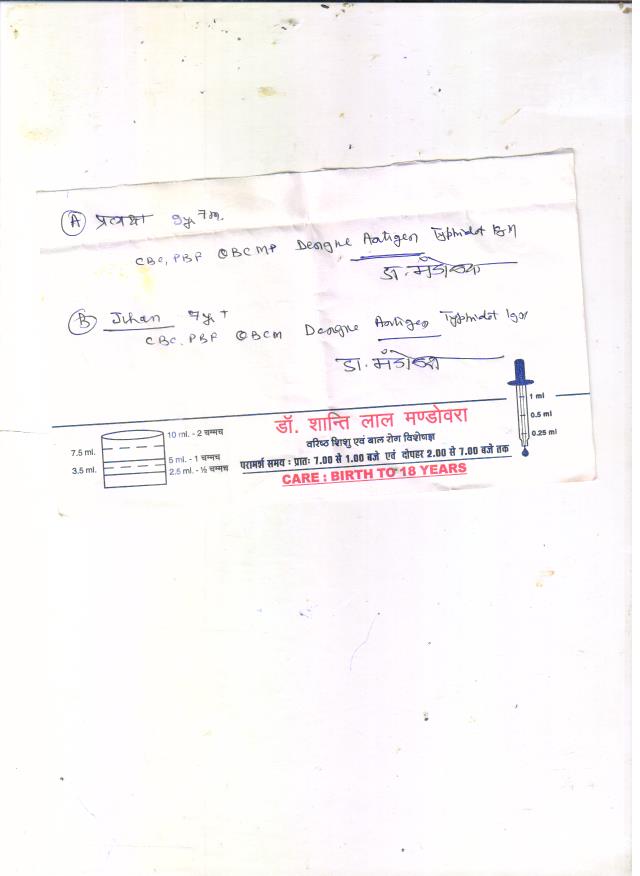 (A) प्रत्यक्षा 9y 7m.
CBC, PBF QBC MP Dengue Antigen Typhidot IgM
डा. मंडोवरा
(B) Jihan 9y +
CBC, PBF QBCM Dengue Antigen Typhidot IgM
डा. मंडोवरा
डॉ. शान्ति लाल मण्डोवरा
वरिष्ठ शिशु एवं बाल रोग विशेषज्ञ
परामर्श समय : प्रातः 7.00 से 1.00 बजे एवं दोपहर 2.00 से 7.00 बजे तक
CARE : BIRTH TO 18 YEARS
10 ml. - 2 चम्मच
7.5 ml.
5 ml. - 1 चम्मच
3.5 ml.
2.5 ml. - ½ चम्मच
1 ml
0.5 ml
0.25 ml